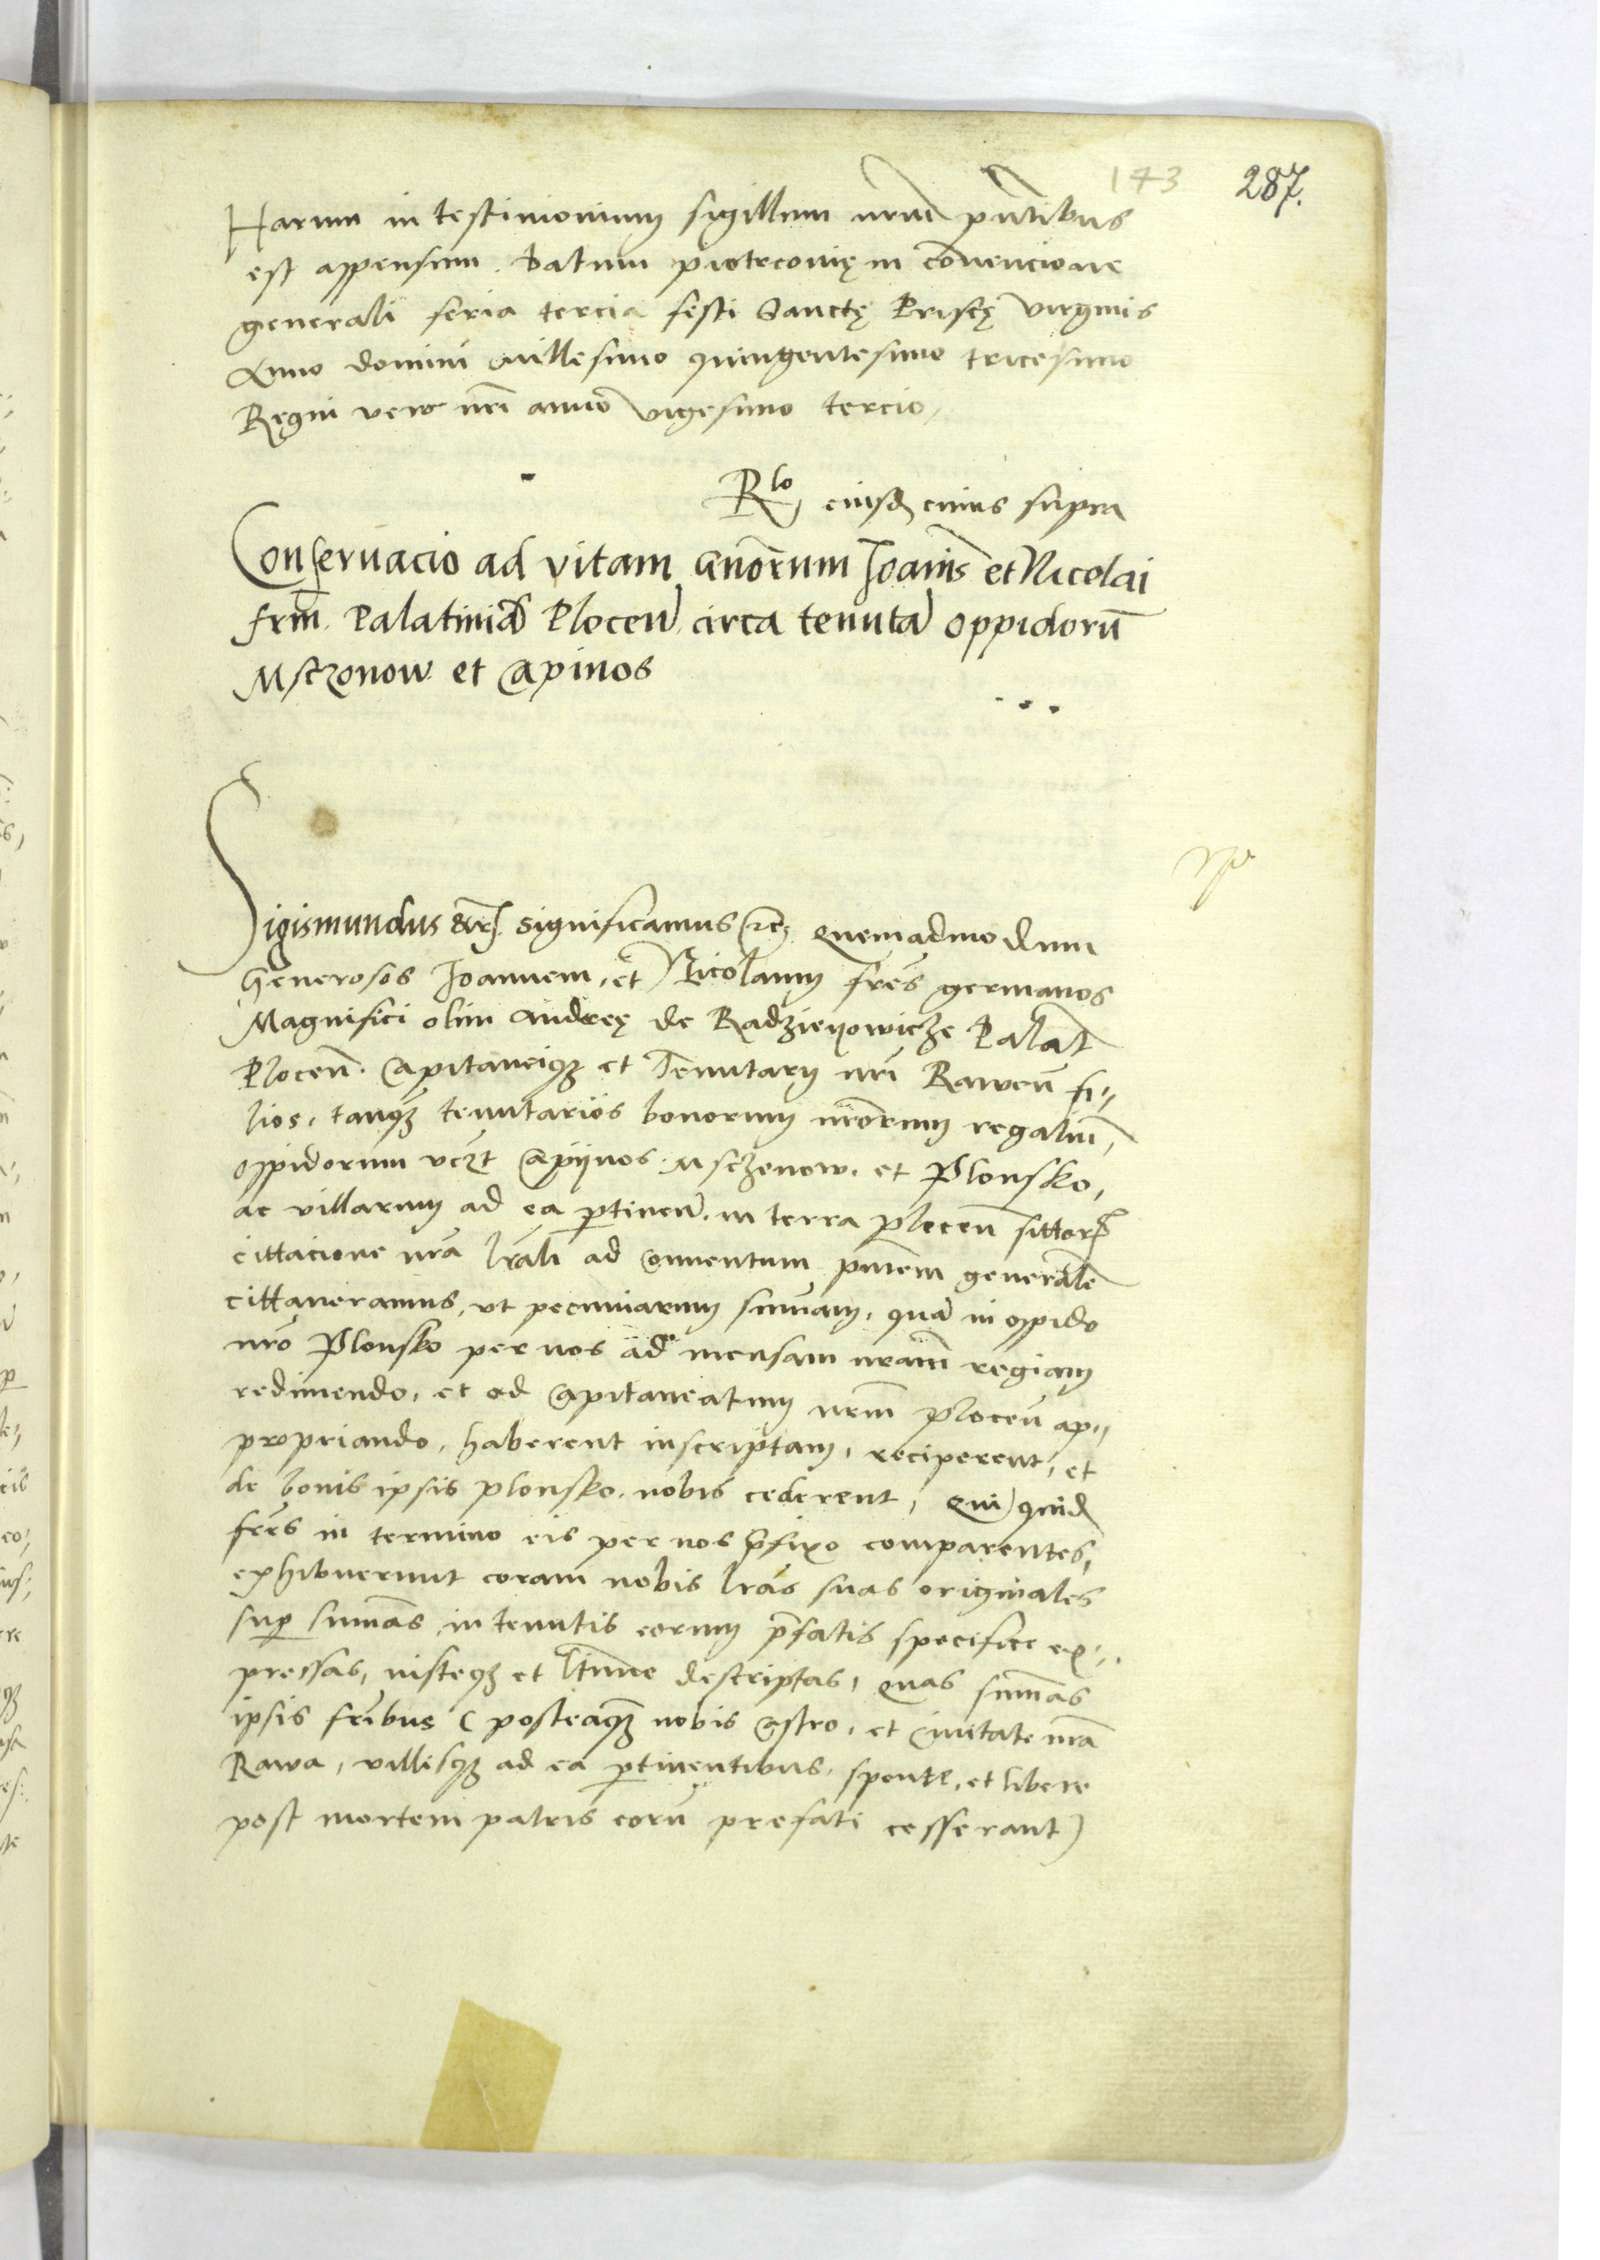 143 287.
Harum in testimonium sigillum nrm̄ pn̄tibus
est appensum. Datum piotrcovię in cōvencione
generali feria tercia festi Sanctę Priscę virginis
Anno domini millesimo quingentesimo tricesimo
Regni vero nr̄i anno vigesimo tercio,
Rlo eiusd cuius supra
Conservacio ad vitam Gn̄orum Joan̄is et Nicolai
frm̄. Palatinid̄ Plocen̄ circa tenutā oppidorū
Msczonow et Capinos
Sigismundus &c̄ significamus &c̄ quemadmodum
Generosos Joannem, et Nicolaum fres̄ germanos
Magnifici olim Andreę de Radzieyowicze Palat̄
Plocen̄. Capitaneiqʒ et Tenutarii nr̄i Rawen̄ fi-
lios, tanqʒ tenutarios bonorum nrōrum regaliū,
oppidorum vczt Capijnos. Msczonow. et Plonsko,
ac villarum ad ea ptinen̄. in terra plocen̄ sittorꝝ
cittacione nrā lrāli ad conventum pn̄tem generalē
cittaveramus, ut pecuniarum sum̄am, quā in oppido
nrō Plonsko per nos ad mensam nrām regiam
redimendo, et ad Capitaneatum nrm̄ plocen̄ ap-
propriando, haberent inscriptam, reciperent, et
de bonis ipsis plonsko. nobis cederent, Qui quid
fres̄ in termino eis per nos p̄fixo comparentes,
exhibuerunt coram nobis lrās suas originales
sup sum̄as in tenutis eorum p̄fatis specifice ex-
pressas, iusteqʒ et ltime descriptas, quas sum̄as
ipsis frībus (posteaqʒ nobis Castro, et Civitate nrā
Rawa, villisqʒ ad ea ptinentibus, sponte, et libere
post mortem patris eorū prefati cesserant)